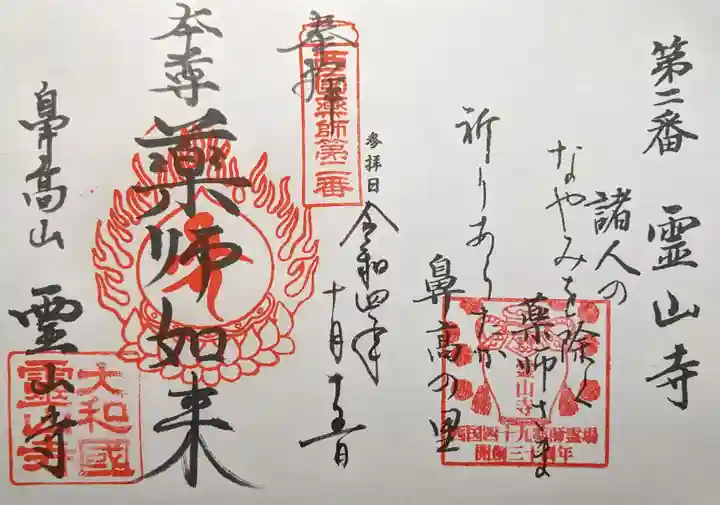 第二番 霊山寺
諸人の
なやみを除く
薬師さま
祈りあらたか
鼻高の里
霊山寺
西国四十九薬師霊場
開創三十周年
奉拝
西国薬師第二番
参拝日
令和四年
十月十五日
本尊
薬師如来
鼻高山 霊山寺
大和國
霊山寺